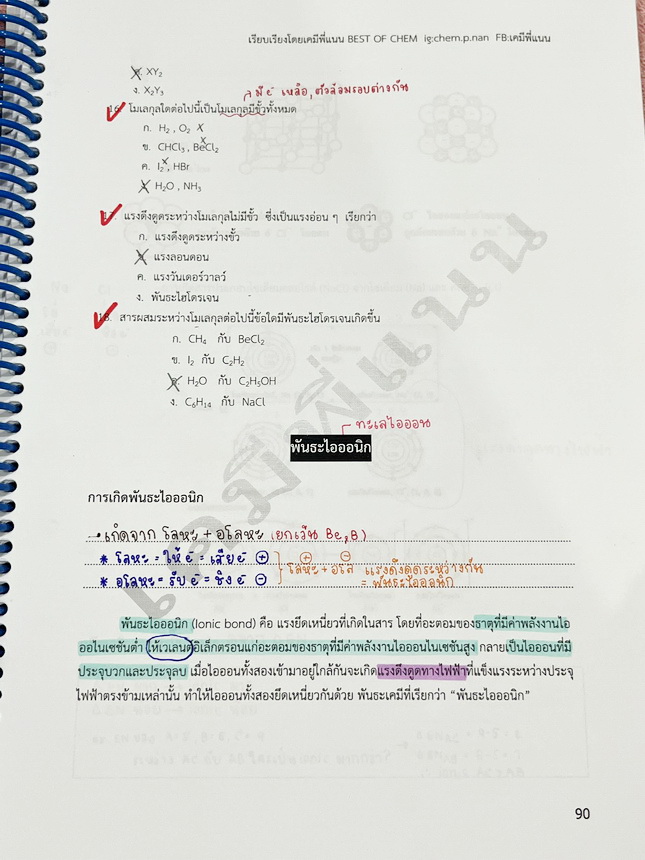 เรียบเรียงโดยเคมีพี่แนน BEST OF CHEM ig:chem.p.nan FB:เคมีพี่แนน
ค. XY₂
ง. X₂Y₃
→ มี e⁻ เหลือ, ตัวล้อมรอบต่างกัน
16. โมเลกุลใดต่อไปนี้เป็นโมเลกุลมีขั้วทั้งหมด
ก. H₂ , O₂ X
ข. CHCl₃ , BeCl₂ X
ค. I₂ X , HBr
ง. H₂O , NH₃
17. แรงดึงดูดระหว่างโมเลกุลไม่มีขั้ว ซึ่งเป็นแรงอ่อน ๆ เรียกว่า
ก. แรงดึงดูดระหว่างขั้ว
ข. แรงลอนดอน
ค. แรงวันเดอร์วาลว์
ง. พันธะไฮโดรเจน
18. สารผสมระหว่างโมเลกุลต่อไปนี้ข้อใดมีพันธะไฮโดรเจนเกิดขึ้น
ก. CH₄ กับ BeCl₂
ข. I₂ กับ C₂H₂
ค. H₂O กับ C₂H₅OH
ง. C₆H₁₄ กับ NaCl
ทะเลไอออน
พันธะไอออนิก
การเกิดพันธะไอออนิก
→ เกิดจาก โลหะ + อโลหะ (ยกเว้น Be, B)
* โลหะ = ให้ e⁻ = เสีย e⁻ ⊕
* อโลหะ = รับ e⁻ = ชิง e⁻ ⊖
⊕ ⊖
โลหะ + อโล แรงดึงดูดระหว่างกัน
= พันธะไอออนิก
พันธะไอออนิก (Ionic bond) คือ แรงยึดเหนี่ยวที่เกิดในสาร โดยที่อะตอมของธาตุที่มีค่าพลังงานไอ
ออไนเซชันต่ำ ให้เวเลนต์อิเล็กตรอนแก่อะตอมของธาตุที่มีค่าพลังงานไอออนไนเซชันสูง กลายเป็นไอออนที่มี
ประจุบวกและประจุลบ เมื่อไอออนทั้งสองเข้ามาอยู่ใกล้กันจะเกิดแรงดึงดูดทางไฟฟ้าที่แข็งแรงระหว่างประจุ
ไฟฟ้าตรงข้ามเหล่านั้น ทำให้ไอออนทั้งสองยึดเหนี่ยวกันด้วย พันธะเคมีที่เรียกว่า “พันธะไอออนิก”
เคมีพี่แนน
90